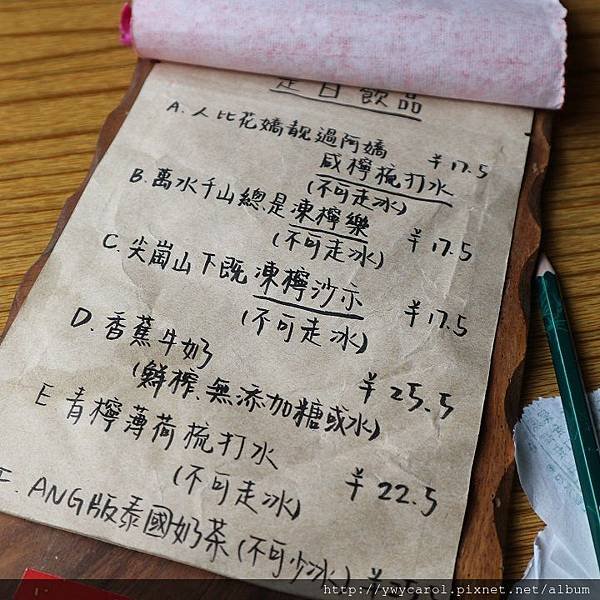 是日飲品
A. 人比花嬌靚過阿嬌
咸檸梳打水 ¥17.5
(不可走冰)
B. 萬水千山總是凍檸樂 ¥17.5
(不可走冰)
C. 尖崗山下既凍檸沙示 ¥17.5
(不可走冰)
D. 香蕉牛奶 ¥25.5
(鮮榨、無添加糖或水)
E 青檸薄荷梳打水 ¥22.5
(不可走冰)
F. ANG版泰國奶茶(不可少冰)
http://ywycarol.pixnet.net/album